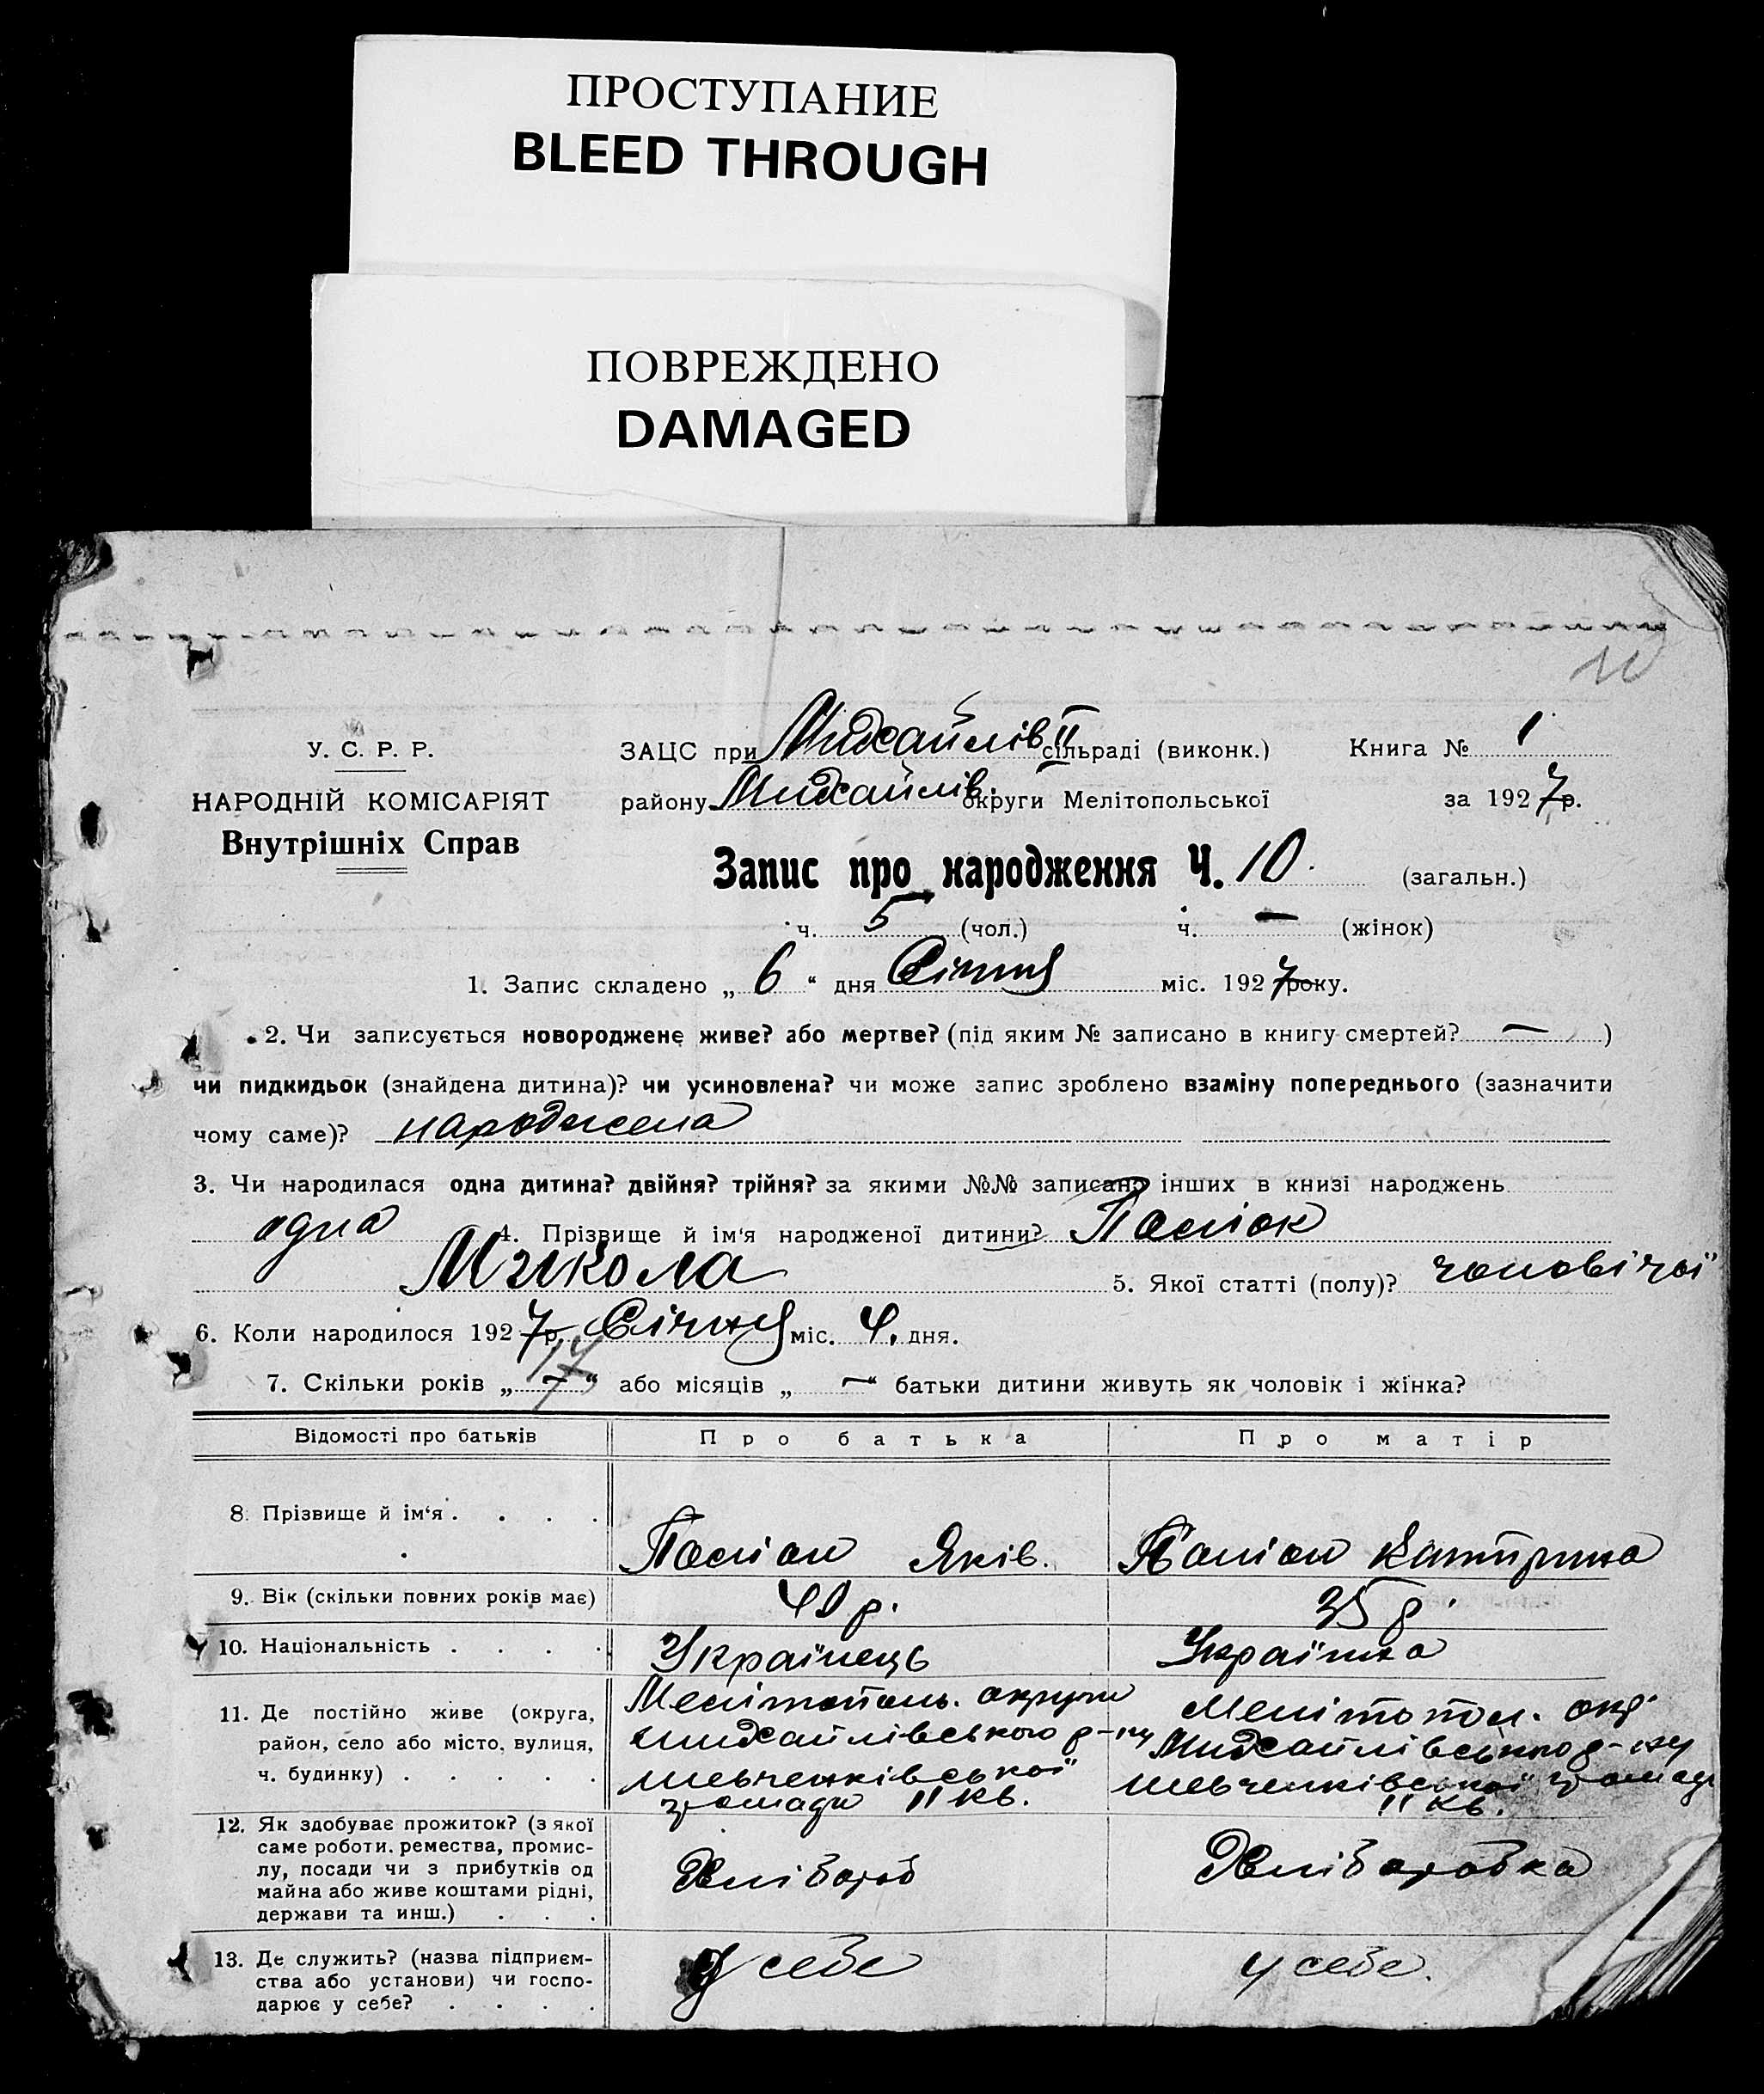 ПРОСТУПАНИЕ
BLEED THROUGH
ПОВРЕЖДЕНО
DAMAGED
10
У. С. Р. Р.
НАРОДНІЙ КОМІСАРІЯТ
Внутрішніх Справ
ЗАЦС при Михайлів II сільраді (виконк.) Книга № 1
району Михайлів. округи Мелітопольської за 1927 р.
Запис про народження Ч. 10. (загальн.)
ч. 5 (чол.) ч. — (жінок)
1. Запис складено „ 6 “ дня Січня міс. 1927 року.
2. Чи записується новороджене живе? або мертве? (під яким № записано в книгу смертей? — )
чи пидкидьок (знайдена дитина)? чи усиновлена? чи може запис зроблено взаміну попереднього (зазначити
чому саме)? народжена
3. Чи народилася одна дитина? двійня? трійня? за якими №№ записано інших в книзі народжень
одна 4. Прізвище й ім‘я народженої дитини?
Микола 5. Якої статті (полу)? чоловічої
6. Коли народилося 1927 р. Січня міс. 4. дня.
7. Скільки років „ — “ 17 або місяців „ — “ батьки дитини живуть як чоловік і жінка?
Відомості про батьків Про батька Про матір
8. Прізвище й ім‘я . . . . Яків. Катирина
9. Вік (скільки повних років має) 40 р. 35 р.
10. Національність . . . . Українець Українка
11. Де постійно живе (округа,
район, село або місто, вулиця,
ч. будинку) . . . . .
Мелітополь. округи
Михайлівського р-ну
Шевченківської
громади II кв.
Мелітопол. окр.
Михайлівського р-ну
Шевченківської громади
II кв.
12. Як здобуває прожиток? (з якої
саме роботи, ремества, промис-
лу, посади чи з прибутків од
майна або живе коштами рідні,
держави та инш.) . . .
Хлібороб
Хліборобка
13. Де служить? (назва підприєм-
ства або установи) чи госпо-
дарює у себе? . . . .
У себе
у себе.